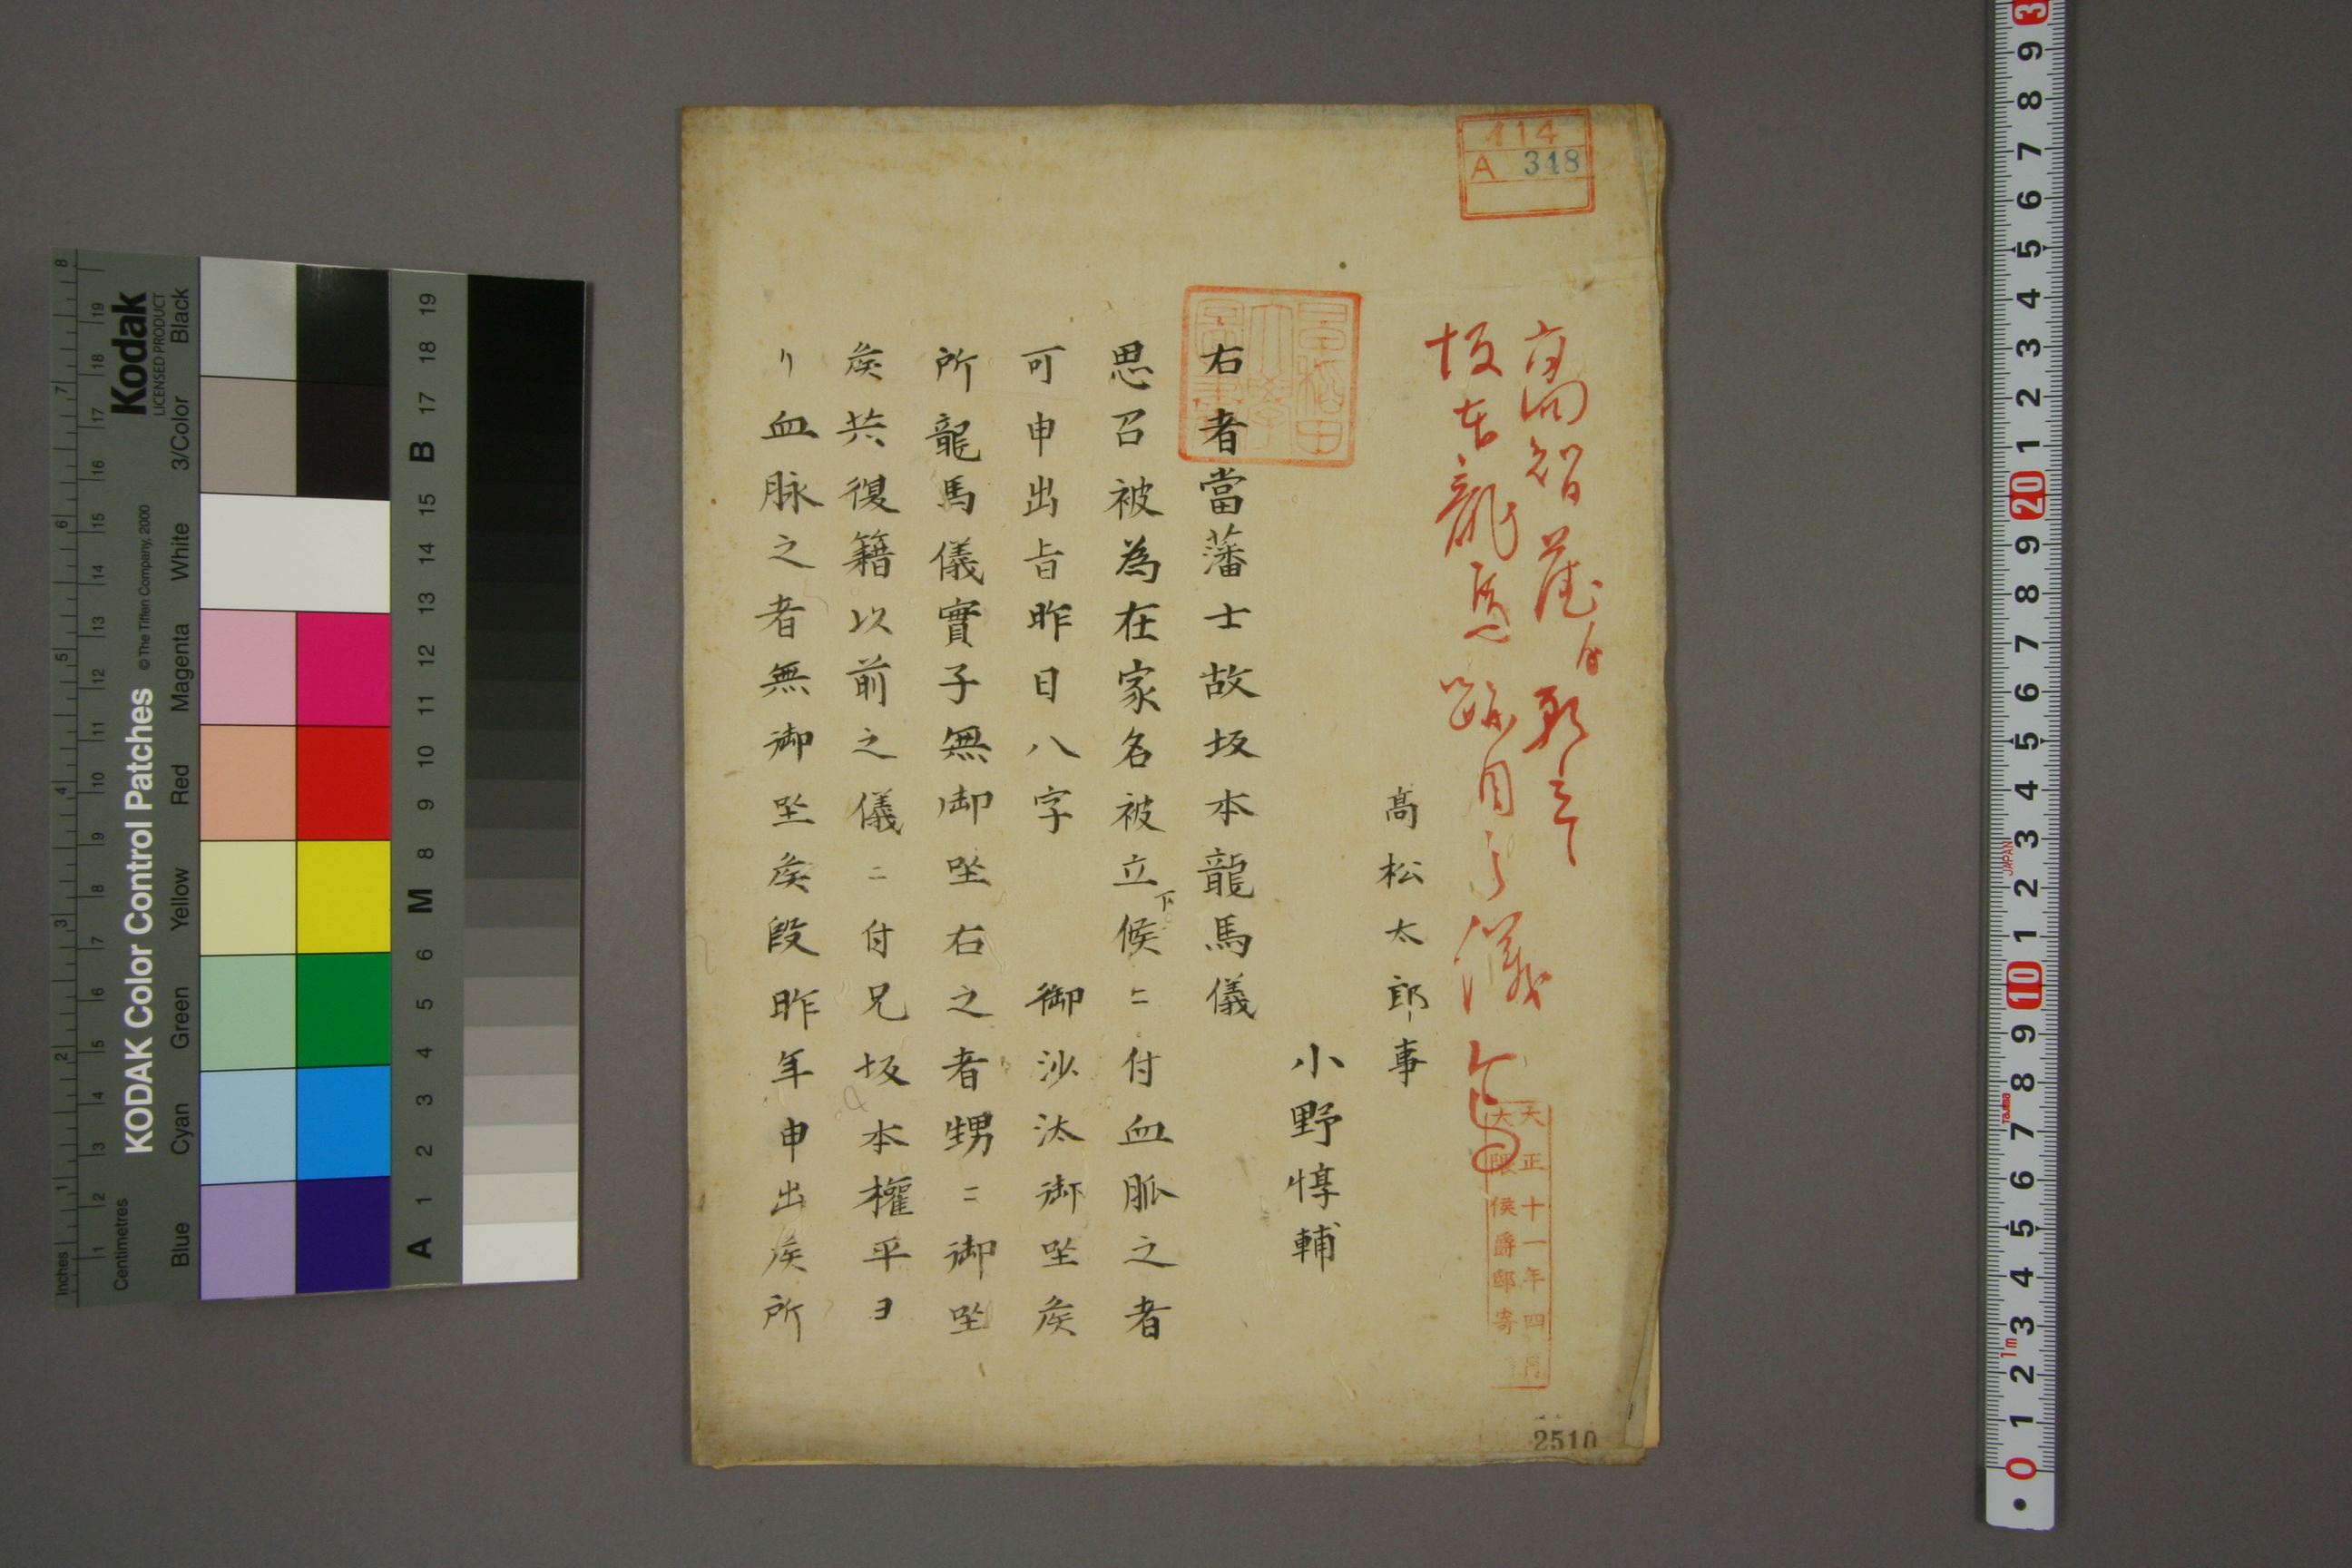 イ14
A 348
高智藩ヨリ願立
坂本龍馬跡目之儀
高松太郎事
小野惇輔
右者當藩士故坂本龍馬儀
思召被為在家名被立下候ニ付血脈之者
可申出旨昨日八字 御沙汰御坐候
所龍馬儀實子無御坐右之者甥ニ御坐
候共復籍以前之儀ニ付兄坂本權平ヨ
リ血脉之者無御坐候段昨年申出候所
早稲田大學圖書
大正十一年四月
大隈侯爵邸寄
2510
KODAK Color Control Patches
© The Tiffen Company, 2000
Kodak
LICENSED PRODUCT
Inches
Centimetres
Blue
Cyan
Green
Yellow
Red
Magenta
White
3/Color
Black
1 2 3 4 5 6 7 8
1 2 3 4 5 6 7 8 9 10 11 12 13 14 15 16 17 18 19
A 1 2 3 4 5 6 M 8 9 10 11 12 13 14 15 B 17 18 19
0 1 2 3 4 5 6 7 8 9 10 1 2 3 4 5 6 7 8 9 20 1 2 3 4 5 6 7 8 9 3
1m
Tajima
JAPAN